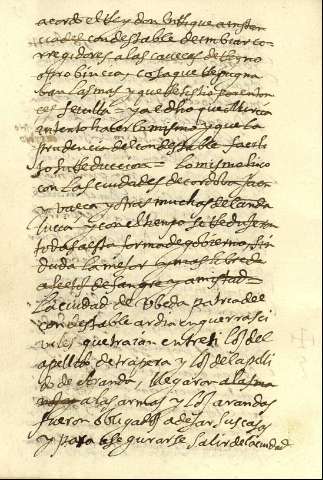 acordo el Rey don Enrrique a instan
cia del condestable de imbiar co
rregidores a las caveças de Reyno
o probincia, cosa que Repugna
ban las mas y que Resistio por enton
ces sevilla
intento hacer lo mismo y que la
prudencia del condestable
su Reduccion = lo mismo hico
con las ciudades de cordova Jaen
y vaeca y otras muchas del anda
lucia y con el tiempo se Redujeron
todas a esta forma de govierno, sin
duda la mejor y mas
de sangre y amistad =
La ciudad de Vbeda patria del
condestable ardia en guerras ci
viles que traian entre si los del
apellido de trapera y los del apelli
do de aranda, llegaron a las ma
a las armas y los arandas
fueron obligados a dejar sus casas
y para asegurarse salir de la ciudad